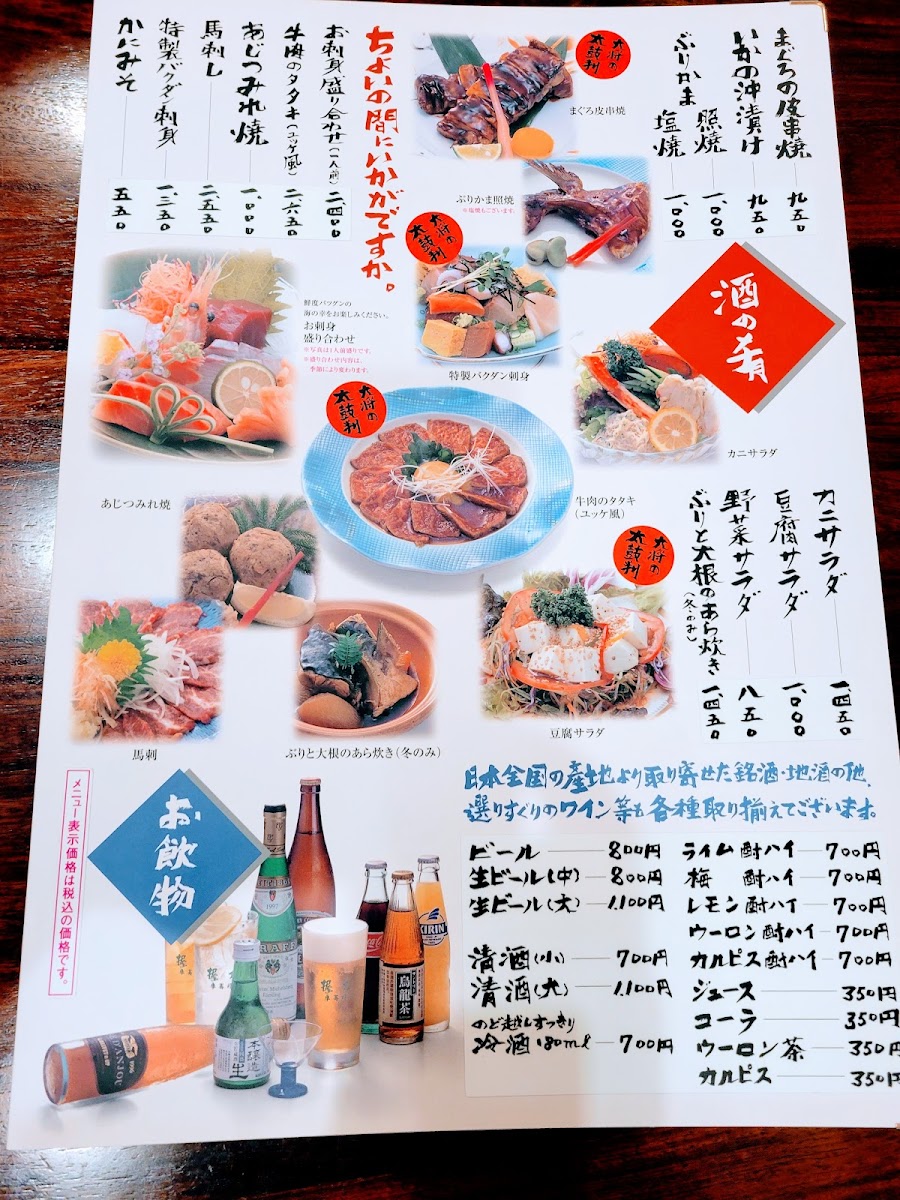 まぐろの皮串焼 九五〇
いかの沖漬け 九五〇
ぶりかま 照焼 一、〇〇〇
塩焼 一、〇〇〇
大将の太鼓判
まぐろ皮串焼
ぶりかま照焼
※塩焼もございます。
酒の肴
ちょいの間にいかがですか。
お刺身盛り合わせ(一人前) 二、四〇〇
牛肉のタタキ(ユッケ風) 二、六五〇
あじつみれ焼 一、〇〇〇
馬刺し 二、五五〇
特製バクダン刺身 一、三五〇
かにみそ 五五〇
大将の太鼓判
特製バクダン刺身
鮮度バツグンの
海の幸をお楽しみください。
お刺身
盛り合わせ
※写真は1人前盛りです。
※盛り合わせ内容は、
季節により変わります。
カニサラダ
大将の太鼓判
牛肉のタタキ
(ユッケ風)
あじつみれ焼
馬刺
ぶりと大根のあら炊き(冬のみ)
大将の太鼓判
豆腐サラダ
カニサラダ 一、四五〇
豆腐サラダ 一、〇〇〇
野菜サラダ 八五〇
ぶりと大根のあら炊き(冬のみ) 一、四五〇
日本全国の産地より取り寄せた銘酒・地酒の他、
選りすぐりのワイン等も各種取り揃えてございます。
お飲物
メニュー表示価格は税込の価格です。
ビール 800円
生ビール(中) 800円
生ビール(大) 1.100円
清酒(小) 700円
清酒(大) 1.100円
のど越しすっきり
冷酒180ml 700円
ライム酎ハイ 700円
梅 酎ハイ 700円
レモン酎ハイ 700円
ウーロン酎ハイ 700円
カルピス酎ハイ 700円
ジュース 350円
コーラ 350円
ウーロン茶 350円
カルピス 350円
烏龍茶
KIRIN
本醸造
生